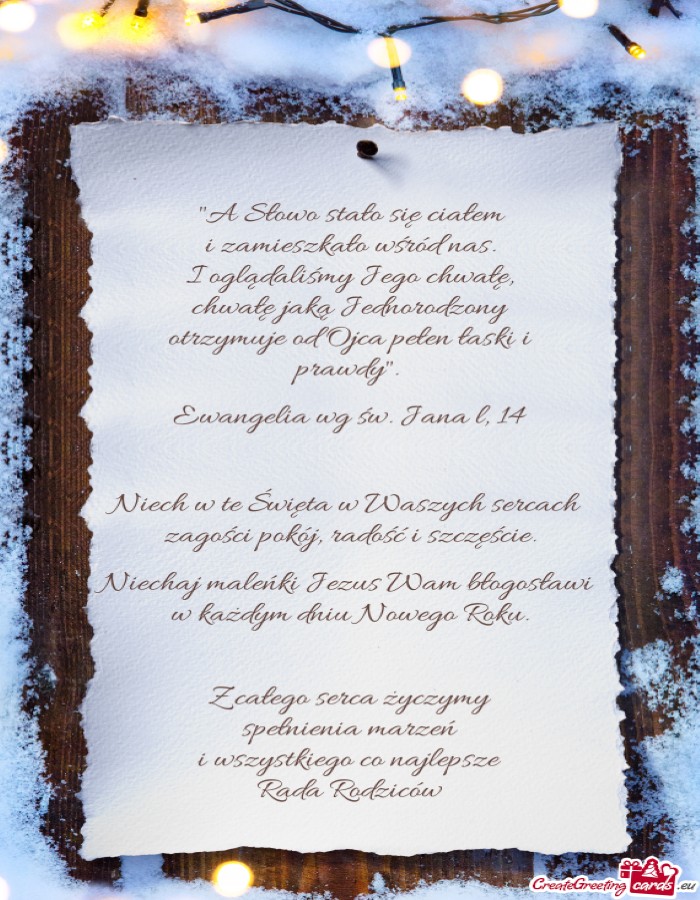 "A Słowo stało się ciałem
i zamieszkało wśród nas.
I oglądaliśmy Jego chwałę,
chwałę jaką Jednorodzony
otrzymuje od Ojca pełen łaski i
prawdy".
Ewangelia wg św. Jana l, 14
Niech w te Święta w Waszych sercach
zagości pokój, radość i szczęście.
Niechaj maleńki Jezus Wam błogosławi
w każdym dniu Nowego Roku.
Z całego serca życzymy
spełnienia marzeń
i wszystkiego co najlepsze
Rada Rodziców
CreateGreeting cards .eu